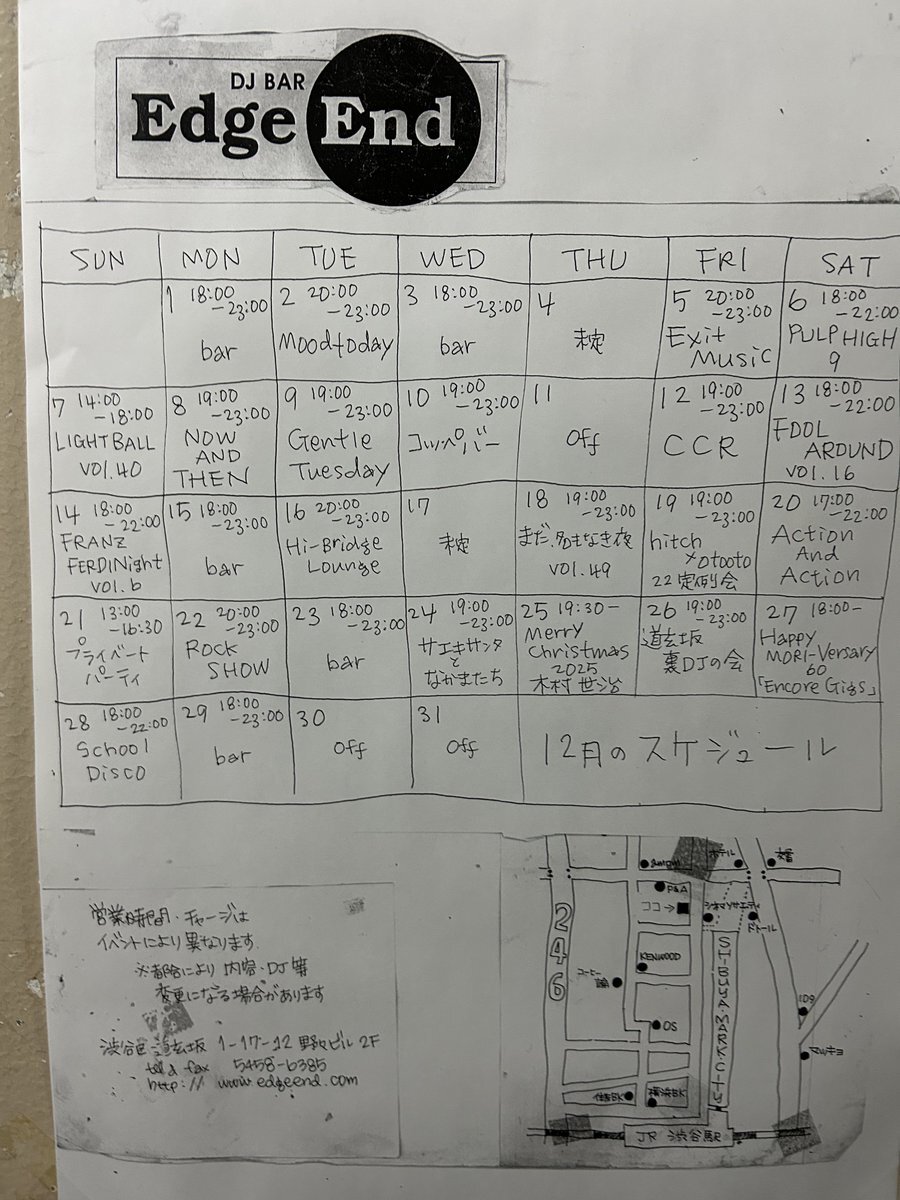 DJ BAR
Edge End
SUN MON TUE WED THU FRI SAT
1 18:00
-23:00
bar
2 20:00
-23:00
Moodtoday
3 18:00
-23:00
bar
4
未定
5 20:00
-23:00
Exit
Music
6 18:00
-22:00
PULP HIGH
9
7 14:00
-18:00
LIGHT BALL
vol.40
8 19:00
-23:00
NOW
AND
THEN
9 19:00
-23:00
Gentle
Tuesday
10 19:00
-23:00
コッペバー
11
Off
12 19:00
-23:00
CCR
13 18:00
-22:00
FOOL
AROUND
vol.16
14 18:00
-22:00
FRANZ
FERDINight
vol.6
15 18:00
-23:00
bar
16 20:00
-23:00
Hi-Bridge
Lounge
17
未定
18 19:00
-23:00
まだ名もなき夜
vol.49
19 19:00
-23:00
hitch
×otooto
22定例会
20 17:00
-22:00
Action
And
Action
21 13:00
-16:30
プライベート
パーティ
22 20:00
-23:00
Rock
SHOW
23 18:00
-23:00
bar
24 19:00
-23:00
サエキサンタ
と
なかまたち
25 19:30-
Merry
Christmas
2025
木村 世治
26 19:00
-23:00
道玄坂
裏DJの会
27 18:00-
Happy
MORI-Versary
60
「Encore Gigs」
28 18:00
-22:00
School
Disco
29 18:00
-23:00
bar
30
Off
31
Off
12月のスケジュール
営業時間・チャージは
イベントにより異なります
※都合により 内容・DJ等
変更になる場合があります
渋谷区 道玄坂 1-17-12 野々ビル 2F
tel & fax 5458-6385
http:// www.edgeend.com
ampm
ホテル
交番
P&A
ココ→
シネマソサエティ
ドトール
246
KENWOOD
SHIBUYA MARK CITY
コーヒー
109
OS
マツキヨ
住友BK
横浜BK
JR 渋谷駅